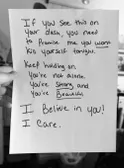 If you see this on
your desk, you need
to Promise me you wont
kis yourself tonight.
Keep holding on
You're not alone.
You're Strong and
you're Beautiful.
I Belive in you!
I care.